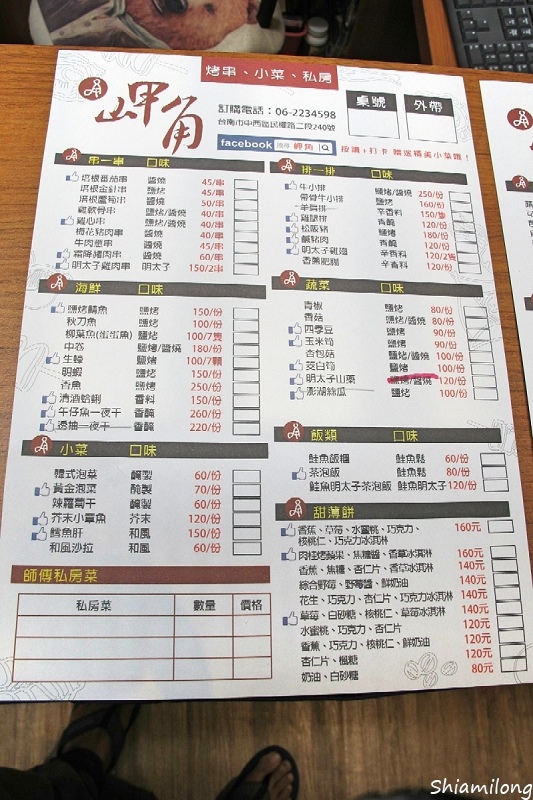 烤串、小菜、私房
岬角
訂購電話：06-2234598
台南市中西區民權路二段240號
桌號
外帶
facebook 搜尋 岬角
按讚+打卡 贈送精美小菜喔！
串一串 口味
培根番茄串 醬燒 45/串
培根金針串 鹽烤 45/串
培根蘆筍串 醬燒 50/串
雞軟骨串 鹽烤/醬燒 40/串
雞心串 鹽烤/醬燒 40/串
梅花豬肉串 醬燒 40/串
牛肉蔥串 醬燒 45/串
霜降豬肉串 鹽烤 60/串
明太子雞肉串 明太子 150/2串
排一排 口味
牛小排 鹽烤/醬燒 250/份
帶骨牛小排 鹽烤 160/份
羊肩排 辛香料 150/隻
雞腿排 青醬 120/份
松阪豬 鹽烤 180/份
鹹豬肉 青醬 120/份
明太子雞翅 辛香料 120/2隻
香蔥肥腸 辛香料 120/份
海鮮 口味
鹽烤鯖魚 鹽烤 150/份
秋刀魚 鹽烤 100/份
柳葉魚(蛋蛋魚) 鹽烤 100/7隻
中卷 鹽烤/醬燒 180/份
生蠔 鹽烤 100/7顆
明蝦 鹽烤 150/份
香魚 鹽烤 250/份
清酒蛤蜊 香料 150/份
午仔魚一夜干 香醃 260/份
透抽一夜干 香醃 220/份
蔬菜 口味
青椒 鹽烤 80/份
香菇 鹽烤/醬燒 80/份
四季豆 鹽烤 90/份
玉米筍 鹽烤 90/份
杏包菇 鹽烤/醬燒 100/份
茭白筍 鹽烤 100/份
明太子山藥 鹽烤/醬燒 120/份
澎湖絲瓜 鹽烤 100/份
小菜 口味
韓式泡菜 醃製 60/份
黃金泡菜 醃製 70/份
辣蘿蔔干 醃製 60/份
芥末小章魚 芥末 120/份
鱈魚肝 和風 150/份
和風沙拉 和風 60/份
飯類 口味
鮭魚飯糰 鮭魚鬆 60/份
茶泡飯 鮭魚鬆 80/份
鮭魚明太子茶泡飯 鮭魚明太子 120/份
甜薄餅
香蕉、草莓、水蜜桃、巧克力、 160元
核桃仁、巧克力冰淇淋
肉桂烤蘋果、焦糖醬、香草冰淇淋 160元
香蕉、焦糖、杏仁片、香草冰淇淋 140元
綜合野莓、野莓醬、鮮奶油 140元
花生、巧克力、杏仁片、巧克力冰淇淋 140元
草莓、白砂糖、核桃仁、草莓冰淇淋 140元
水蜜桃、巧克力、杏仁片 120元
香蕉、巧克力、核桃仁、鮮奶油 120元
杏仁片、楓糖 120元
奶油、白砂糖 80元
師傅私房菜
私房菜 數量 價格
Shiamilong